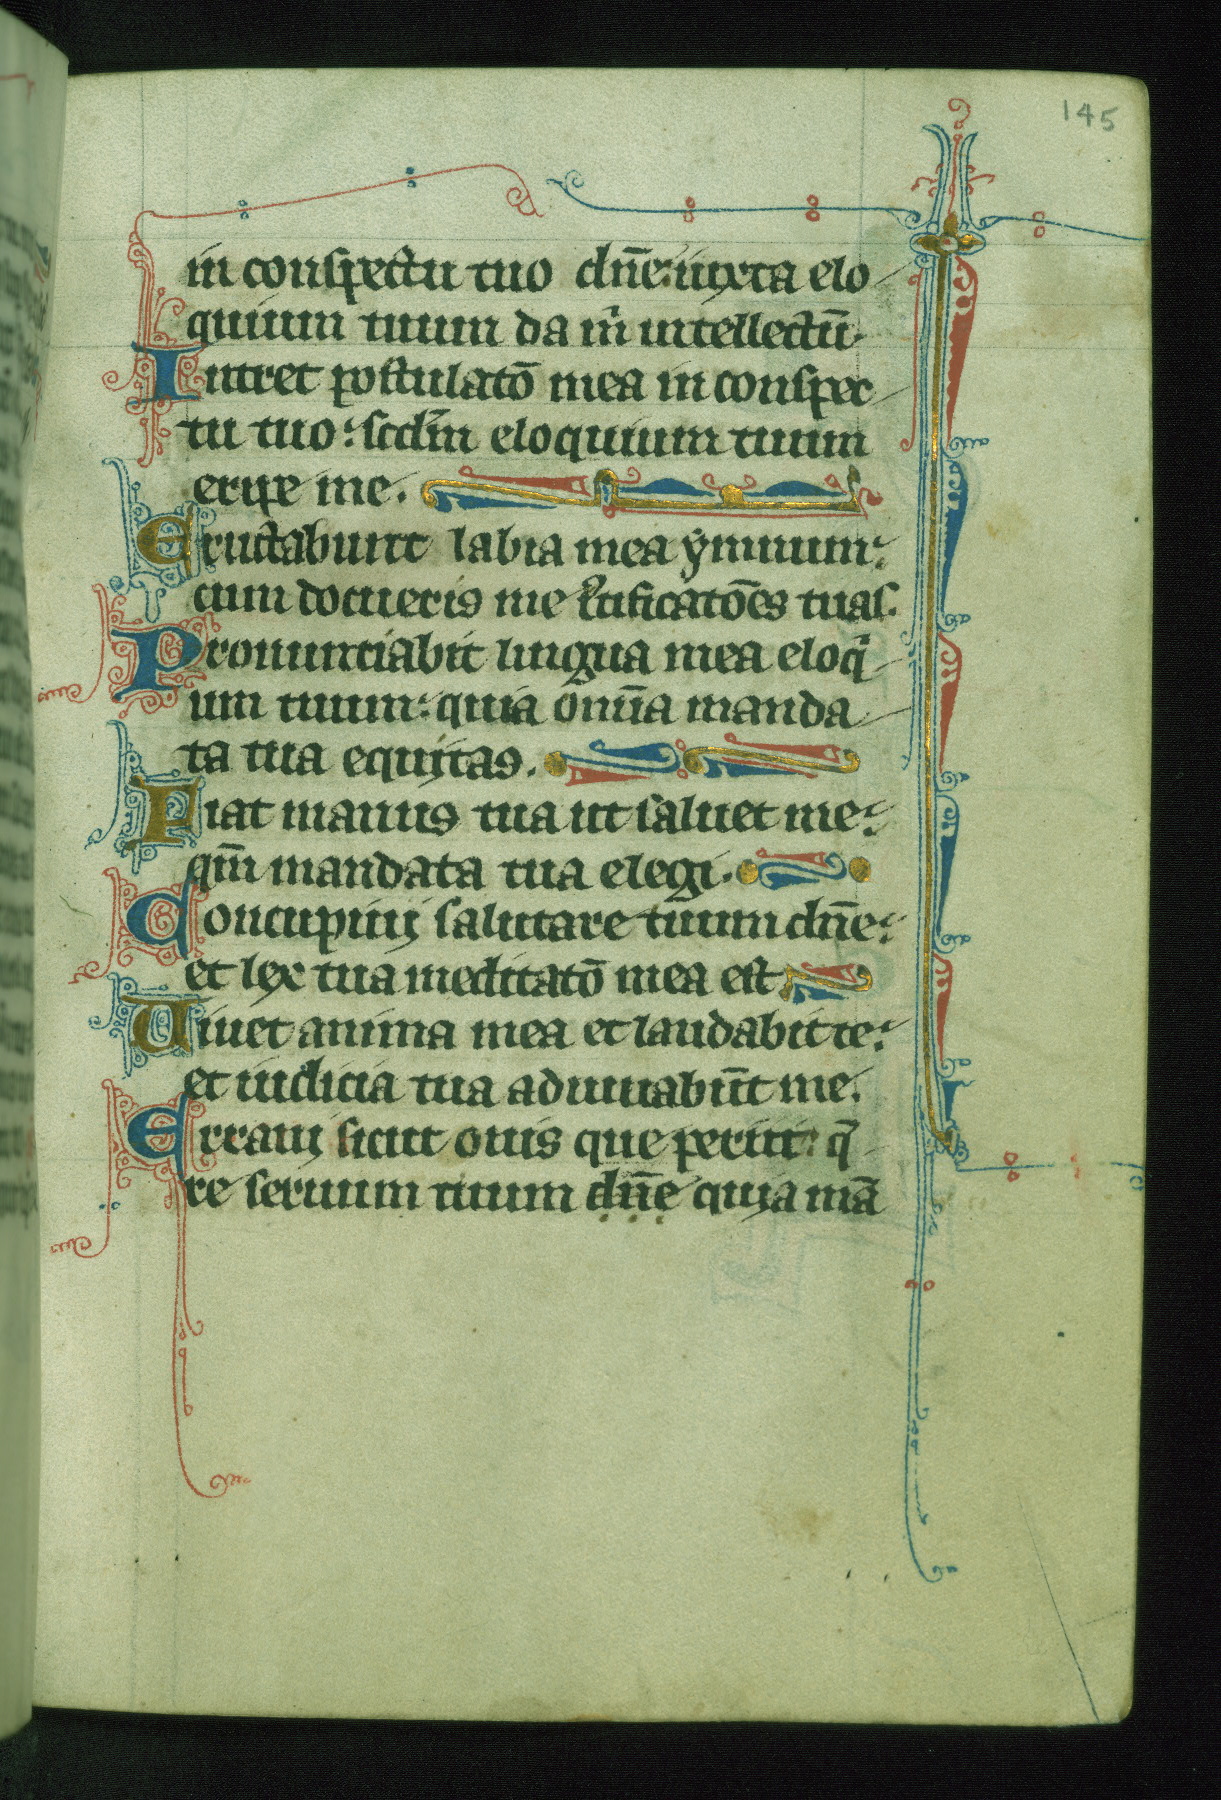 145
in conspectu tuo dn̄e: iuxta elo
quium tuum da m̄ intellectū.
Intret postulatō mea in conspec
tu tuo: scdm̄ eloquium tuum
eripe me.
Eructabunt labia mea ẏmnum:
cum docueris me iustificatōēs tuas.
Pronuntiabit lingua mea eloqi
um tuum: quia om̄ia manda
ta tua equitas.
Fiat manus tua ut saluet me:
qm̄ mandata tua elegi.
Concupiui salutare tuum dn̄e:
et lex tua meditatō mea est
Uiuet anima mea et laudabit te:
et iudicia tua adiuuabūt me.
Erraui sicut ouis que periit: q̄
re seruum tuum dn̄e quia mā